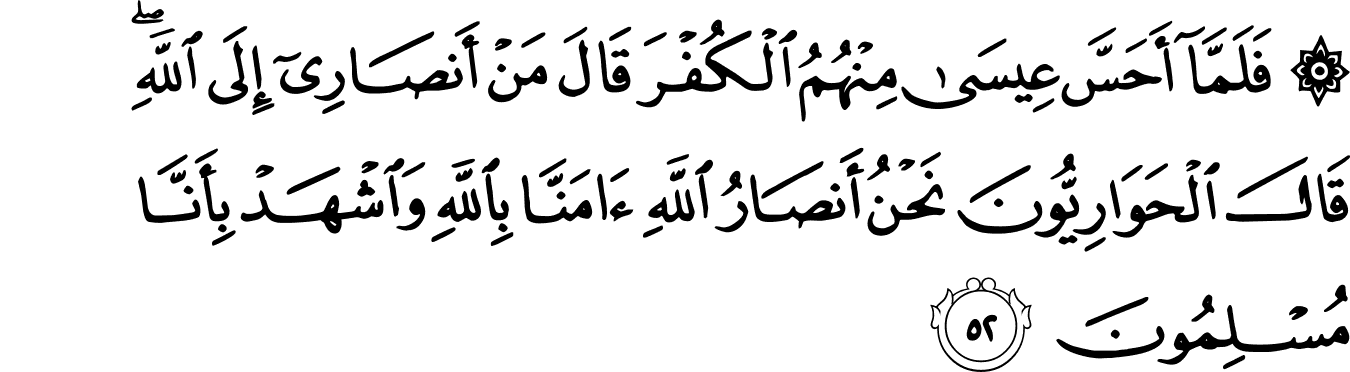 ۞ فَلَمَّآ أَحَسَّ عِيسَىٰ مِنْهُمُ ٱلْكُفْرَ قَالَ مَنْ أَنصَارِىٓ إِلَى ٱللَّهِ ۖ
قَالَ ٱلْحَوَارِيُّونَ نَحْنُ أَنصَارُ ٱللَّهِ ءَامَنَّا بِٱللَّهِ وَٱشْهَدْ بِأَنَّا
مُسْلِمُونَ ٥٢